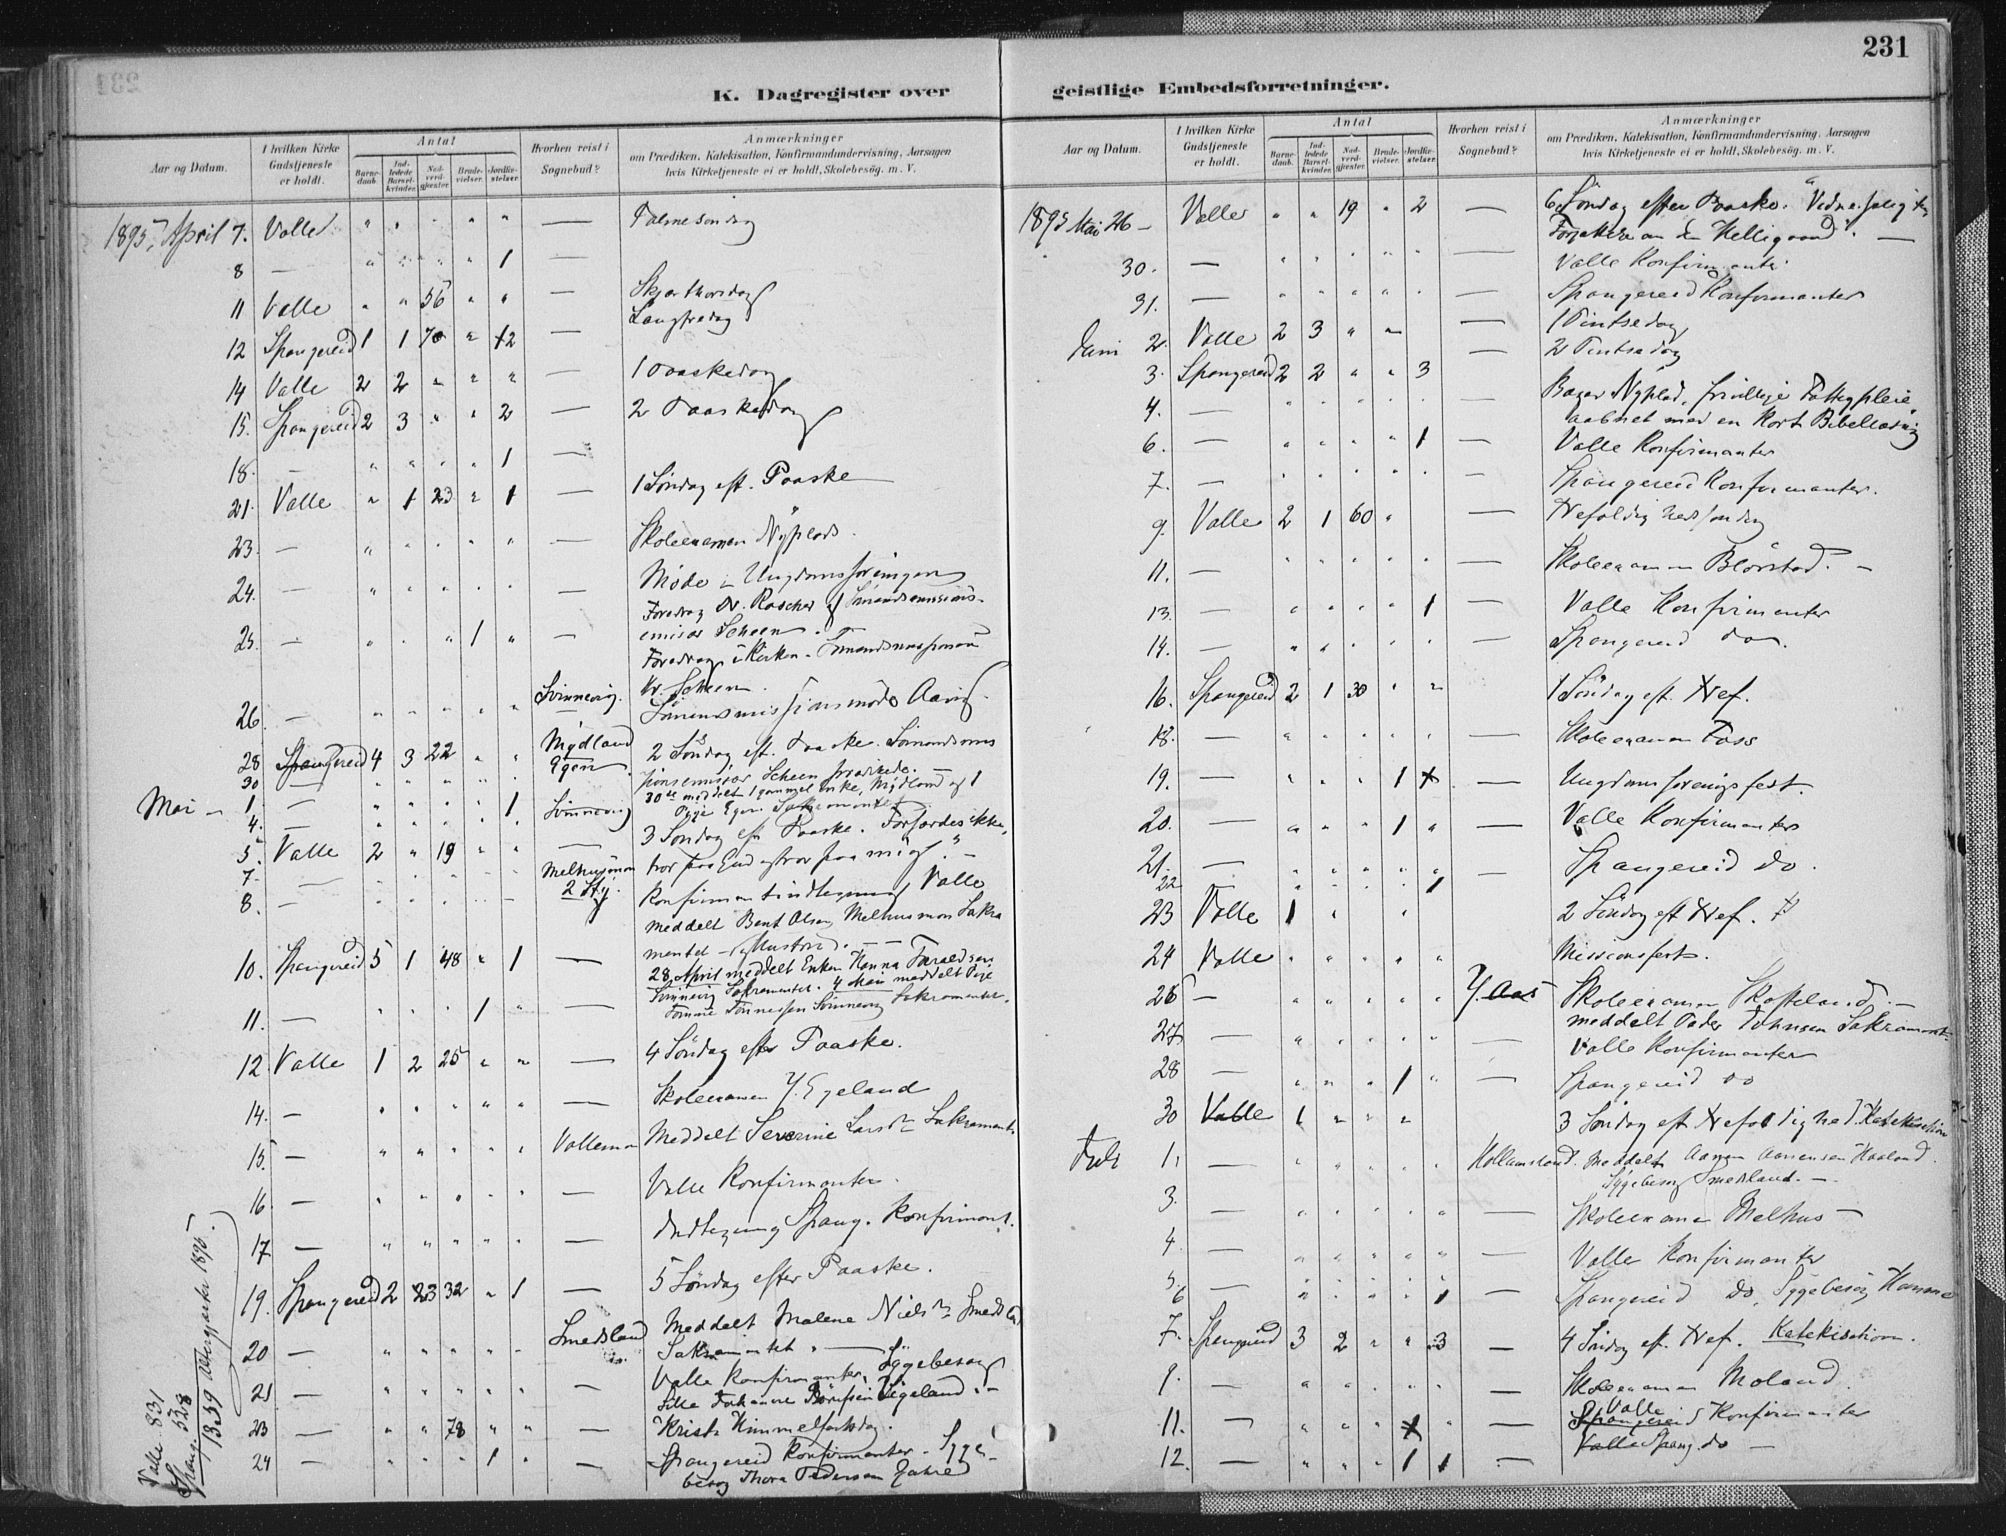 231
K. Dagregister over geistlige Embedsforretninger.
Aar og Datum. I hvilken Kirke Gudstjeneste er holdt. Antal Barnedaab. Indledede Barselkvinder. Nadverdgjæster. Brudevielser. Jordfæstelser. Hvorhen reist i Sognebud? Anmærkninger om Prædiken, Katekisation, Konfirmandundervisning, Aarsagen hvis Kirketjeneste ei er holdt, Skolebesøg. m. V.
1895, April 7. Valle " " " " " — Palmesøndag
8 — " " " " 1
11 Valle " " 56 " " — Skjærthorsdag
12 Spangereid 1 1 70 " 12 — Langfredag
14 Valle 2 2 " " " — 1 Paaskedag
15. Spangereid 2 3 " " 2 — 2 Paaskedag
18. — " " " " 1 —
21. Valle " 1 23 " 1 — 1 Søndag eft. Paaske
23. — " " " " " — Skoleexamen Nÿplads.
24. — " " " " " — Møde i Ungdomsforeningen
Foredrag
25. — " " " 1 " — emisær Scheen.
Foredrag i Kirken.
Scheen.
26. — " " " " " Svinnevig.
28 Spangereid 4 3 22 " " Mydland Egen. 2 Søndag eft. Paaske.
30 — emisær Scheen prædikede. —
30te meddelt 1 gammel Enke, Mydland og 1
Mai — 1. — " " " " 1 Svinnevig Pige Egen Sakramentet
4. — 3 Søndag eft Paaske. Forfærdes ikke,
5. Valle 2 " 19 " " — tror paa Gud og tror paa mig!" —
7. — Melhusmoen 2 Sty.
8. — Konfirmantindtegning Valle
meddelt Bent Olsen Melhusmoen Sakra
mentet — Hustru. — —
10. Spangereid 5 1 48 " 1 — 28 April meddelt Enken Hanna Taraldsen
Svinnevig Sakramentet. 4 Mai meddelt Pige
11. — " " " 1 " — Tønnessen Svinnevig Sakramentet.
12. Valle 1 2 25 " " — 4 Søndag efter Paaske.
14. — " " " " " — Skoleexamen Y. Egeland
15. — " " " " " Vallemo Meddelt Severine Larsdr Sakramentet
16. — " " " " " — Valle Konfirmanter.
17. — " " " " " — Indtegning Spang. Konfirmant.
19. Spangereid 2 23 32 " 1 — 5 Søndag efter Paaske.
20 — " " " " " Smedsland Meddelt Malene Nielsdr Smedsland
Sakramentet " — Sygebesøg
21 — " " " " " — Valle Konfirmanter.
23 — " " 78 " " — Kristi Himmelfartsdag.
24 — " " " 1 " — Spangereid Konfirmanter. Syge-
besøg Thora Pedersen Jahre
Valle 831
Spang. 528
1359 Altergjæster 1895.
1895 Mai 26 — Valle " " 19 " 2 — 6. Søndag efter Paaske.
den Helligaand". —
30. — " " " " " — Valle Konfirmanter
31. — " " " " " — Spangereid Konfirmanter
Juni 2. Valle 2 3 " " — 1 Pintsedag
3. Spangereid 2 2 " " 3 — 2 Pintsedag
4. — " " " " " — Bazar Nÿplad, frivillige Fattigpleie
aabnet med en kort Bibellæsning
6. — " " " " 1 — Valle Konfirmanter
7. — " " " " " — Spangereid Konfirmanter.
9. Valle 2 1 60 " — Trefoldighedssøndag
11. — " " " " " — Skoleexamen Blørstad. —
13. — " " " " 1 — Valle Konfirmanter
14. — " " " " " — Spangereid do.
16. Spangereid 2 1 30 " " — 1 Søndag eft. Tref.
18. — " " " " " — Skoleexamen Foss
19. — " " " 1 — Ungdomsforeningsfest.
20. — " " " 1 " — Valle Konfirmanter
21. — " " " " " — Spangereid do.
22 " " " " 1
23 Valle 1 " " 2 Søndag eft Tref.
24 Valle " " " " " Missionsfest.
26 — " " " " " Y. Aas Skoleexamen Skofteland. —
meddelt Peder Johnsen Sakrament
27 — " " " " " — Valle Konfirmanter
28 — " " " 1 " — Spangereid do
30 Valle 1 " " " 3 Søndag eft Trefoldighed. Katekisation
Juli 1. — " " " " " meddelt Aanen Aanensen Haaland.
Sygebesøg Smedsland. —
3. — " " " " " — Skoleexamen Melhus —
4. — " " " " " — Valle Konfirmanter
5. — " " " " " —
6 — " " " " 1 — Spangereid do, Sygebesøg
7. Spangereid 3 2 " " 3 — 4 Søndag eft. Tref. Katekisation.
9. — " " " " " — Skoleexamen Moland.
11. — " " " — Valle Konfirmanter
12. — " " " 1 1 — Spang do —